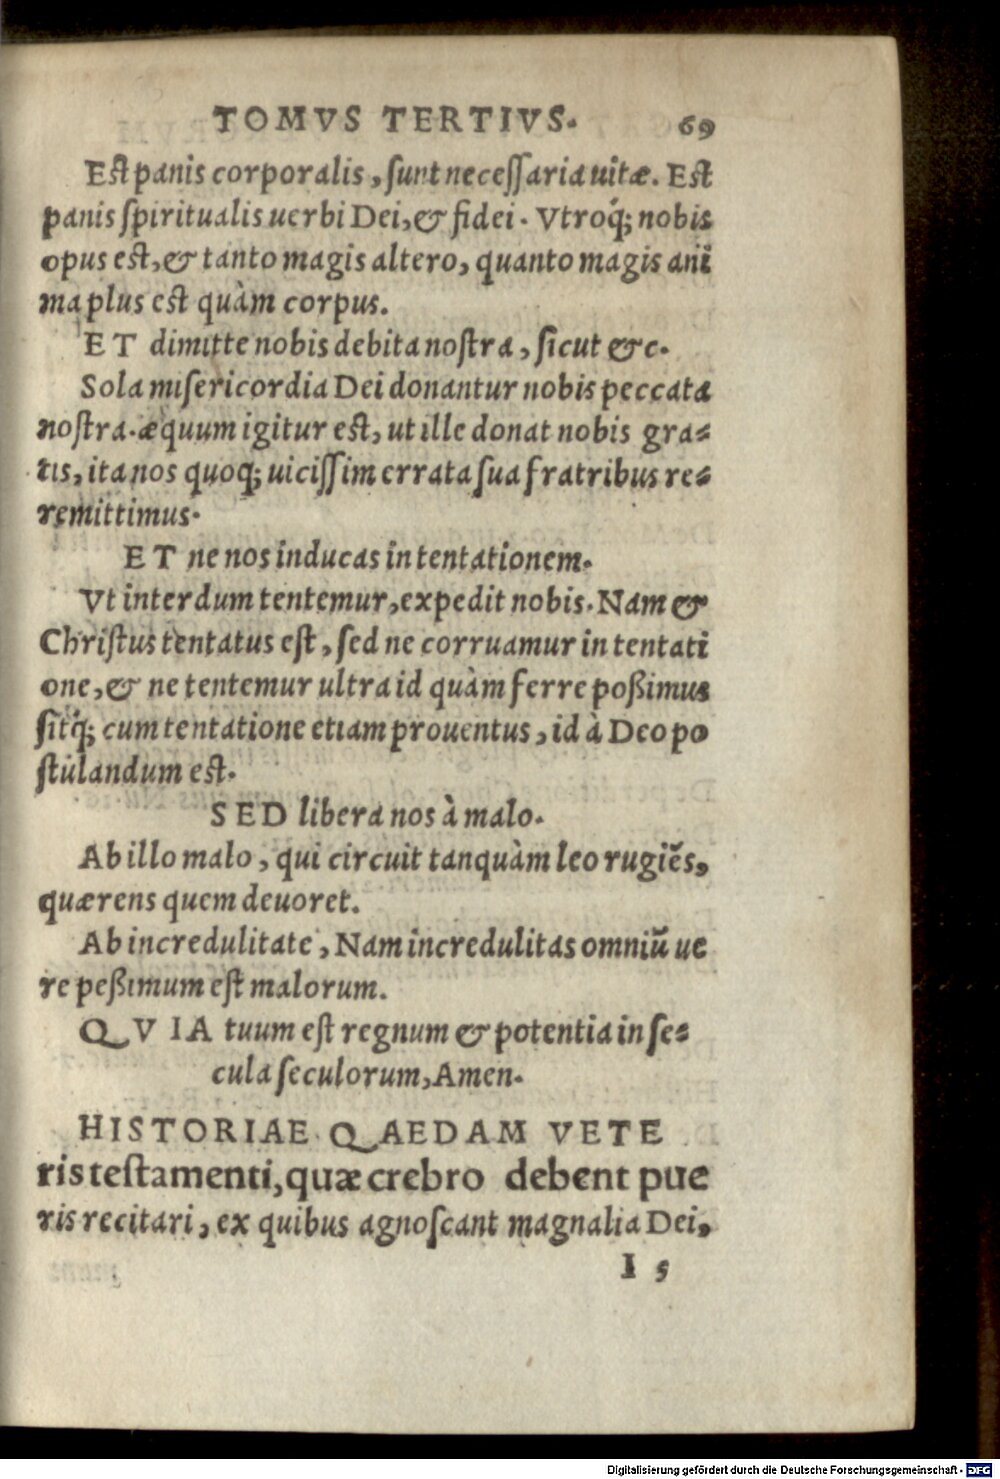 TOMVS TERTIVS. 69
Est panis corporalis, sunt necessaria uitæ. Est
panis spiritualis uerbi Dei, & fidei. Vtroq́; nobis
opus est, & tanto magis altero, quanto magis ani
ma plus est quàm corpus.
ET dimitte nobis debita nostra, sicut &c.
Sola misericordia Dei donantur nobis peccata
nostra. æquum igitur est, ut ille donat nobis gra-
tis, ita nos quoq; uicissim errata sua fratribus re-
remittimus.
ET ne nos inducas in tentationem.
Vt interdum tentemur, expedit nobis. Nam &
Christus tentatus est, sed ne corruamur in tentati
one, & ne tentemur ultra id quàm ferre poßimus
sitq́; cum tentatione etiam prouentus, id à Deo po
stulandum est.
SED libera nos à malo.
Ab illo malo, qui circuit tanquàm leo rugiẽs,
quærens quem deuoret.
Ab incredulitate, Nam incredulitas omniũ ue
re peßimum est malorum.
QVIA tuum est regnum & potentia in se-
cula seculorum, Amen.
HISTORIAE QAEDAM VETE
ris testamenti, quæ crebro debent pue
ris recitari, ex quibus agnoscant magnalia Dei,
I 5
Digitalisierung gefördert durch die Deutsche Forschungsgemeinschaft - DFG